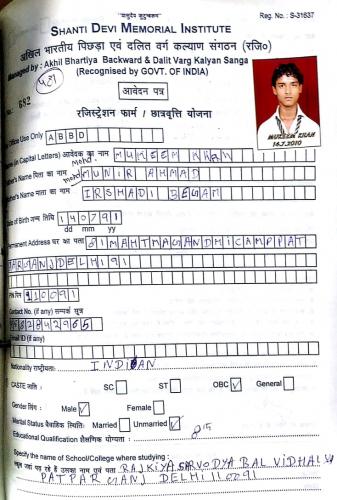 "वसुधैव कुटुम्बकम्"
Reg. No. : S-31637
SHANTI DEVI MEMORIAL INSTITUTE
अखिल भारतीय पिछड़ा एवं दलित वर्ग कल्याण संगठन (रजि०)
Managed by : Akhil Bhartiya Backward & Dalit Varg Kalyan Sanga
(Recognised by GOVT. OF INDIA)
आवेदन पत्र
No.: 682
रजिस्ट्रेशन फार्म / छात्रवृत्ति योजना
MUKEEM KHAN
16.7.2010
Office Use Only ABBD
Name (in Capital Letters) आवेदक का नाम Mohd. MUKEEM KHAN
Father's Name पिता का नाम Mohd MUNIR AHMAD
Mother's Name माता का नाम IRSHADI BEGAM
Date of Birth जन्म तिथि 140791
dd mm yy
Permanent Address घर का पता 91 MAHTMAGANDHICAMPPAT
PARGANJDELHI91
Pin पिन 110091
Contact No. (if any) सम्पर्क सूत्र
Email ID (if any)
Nationality राष्ट्रीयता: INDIAN
CASTE जाति : SC ST OBC ✓ General
Gender लिंग : Male ✓ Female
Marital Status वैवाहिक स्थिति: Married Unmarried ✓
Educational Qualification शैक्षणिक योग्यता : 8th
Specify the name of School/College where studying :
स्कूल जहां पढ़ रहे हैं उसका नाम एवं पता RAJKIYA SARVODYA BAL VIDHALYA
PATPARGANJ DELHI 110091